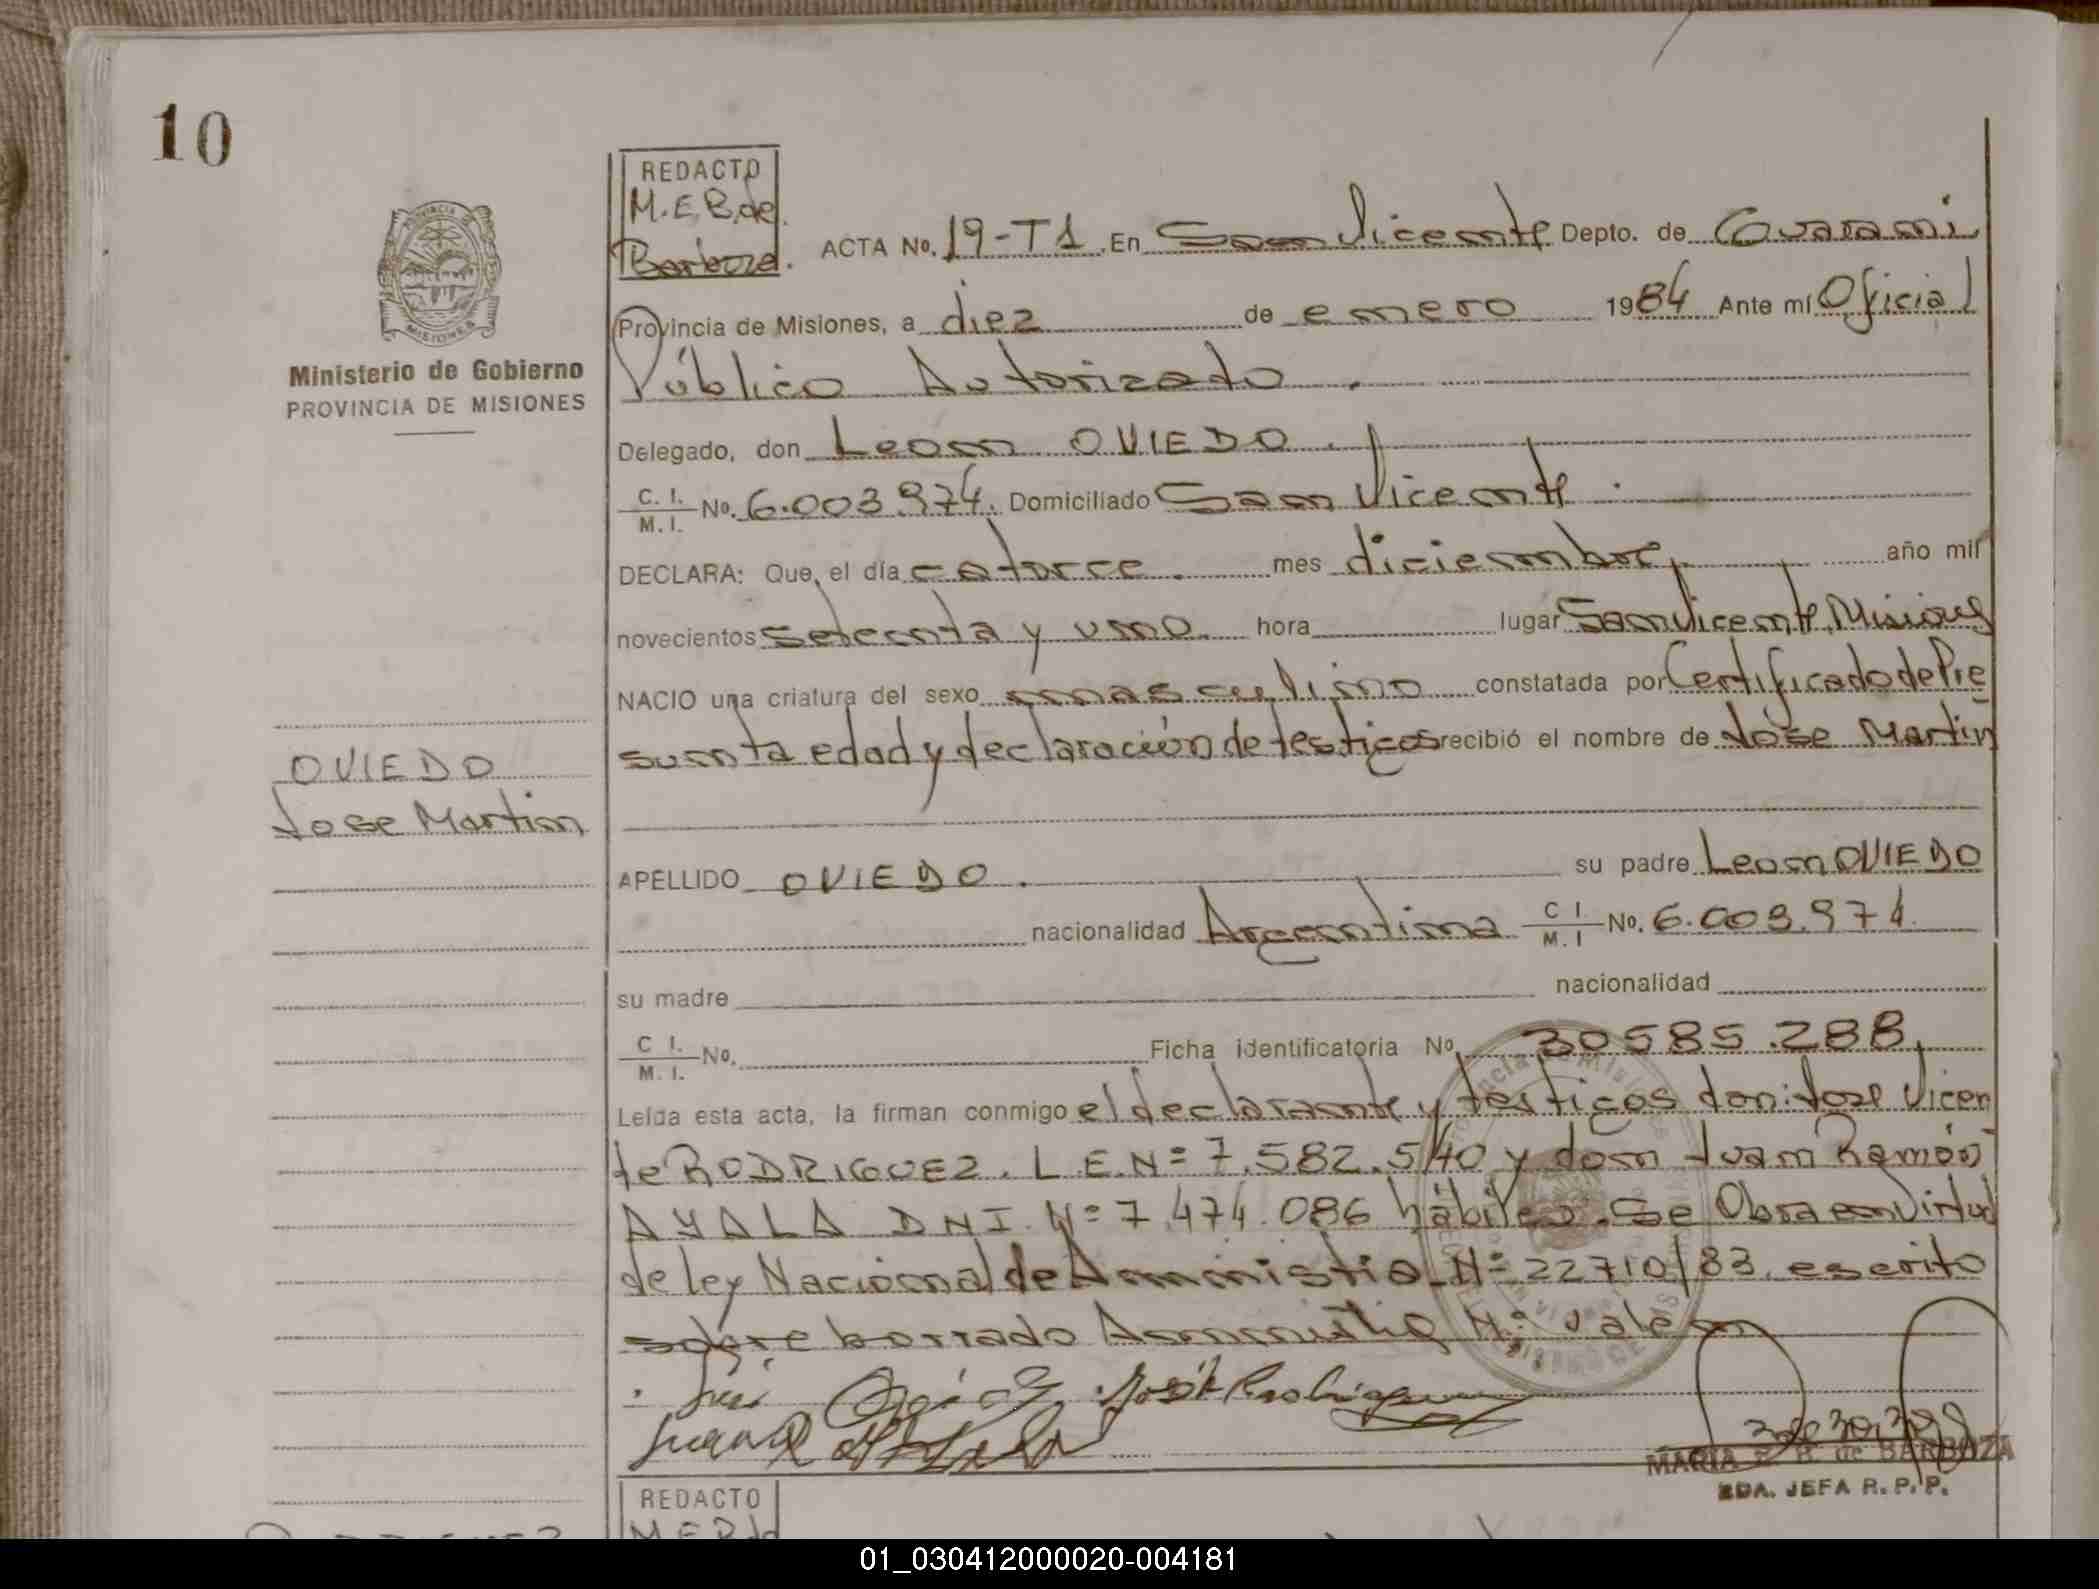 10
REDACTO
M.E.B.de
Barboza.
ACTA No. 19-T1 En San Vicente Depto. de Guarani
Provincia de Misiones, a diez de enero 1984 Ante mí Oficial
Público Autorizado.
Ministerio de Gobierno
PROVINCIA DE MISIONES
Delegado, don Leon OVIEDO.
C. I.
M. I. No. 6.003.974. Domiciliado San Vicente.
DECLARA: Que, el día catorce. mes diciembre, año mil
novecientos setenta y uno. hora lugar San Vicente, Misiones
NACIO una criatura del sexo masculino constatada por Certificado de Pre
sunta edad y declaración de testigos recibió el nombre de Jose Martin
OVIEDO
Jose Martin
APELLIDO OVIEDO. su padre Leon OVIEDO
nacionalidad Argentina C I M. I No. 6.003.974.
su madre nacionalidad
C I. M. I. No. Ficha identificatoria No. 30585.288.
Leída esta acta, la firman conmigo el declarante y testigos don: Jose Vicen
te RODRIGUEZ. L.E.Nº 7.582.540 y don Juan Ramón
AYALA DNI. Nº 7.474.086 hábiles. Se Obra en virtud
de ley Nacional de Amnistia Nº 22710/83. escrito
sobre borrado Amnistia Nº: vale
José Rodriguez
MARIA E. B. de BARBOZA
2DA. JEFA R.P.P.
REDACTO
M.E.B.de
01_030412000020-004181